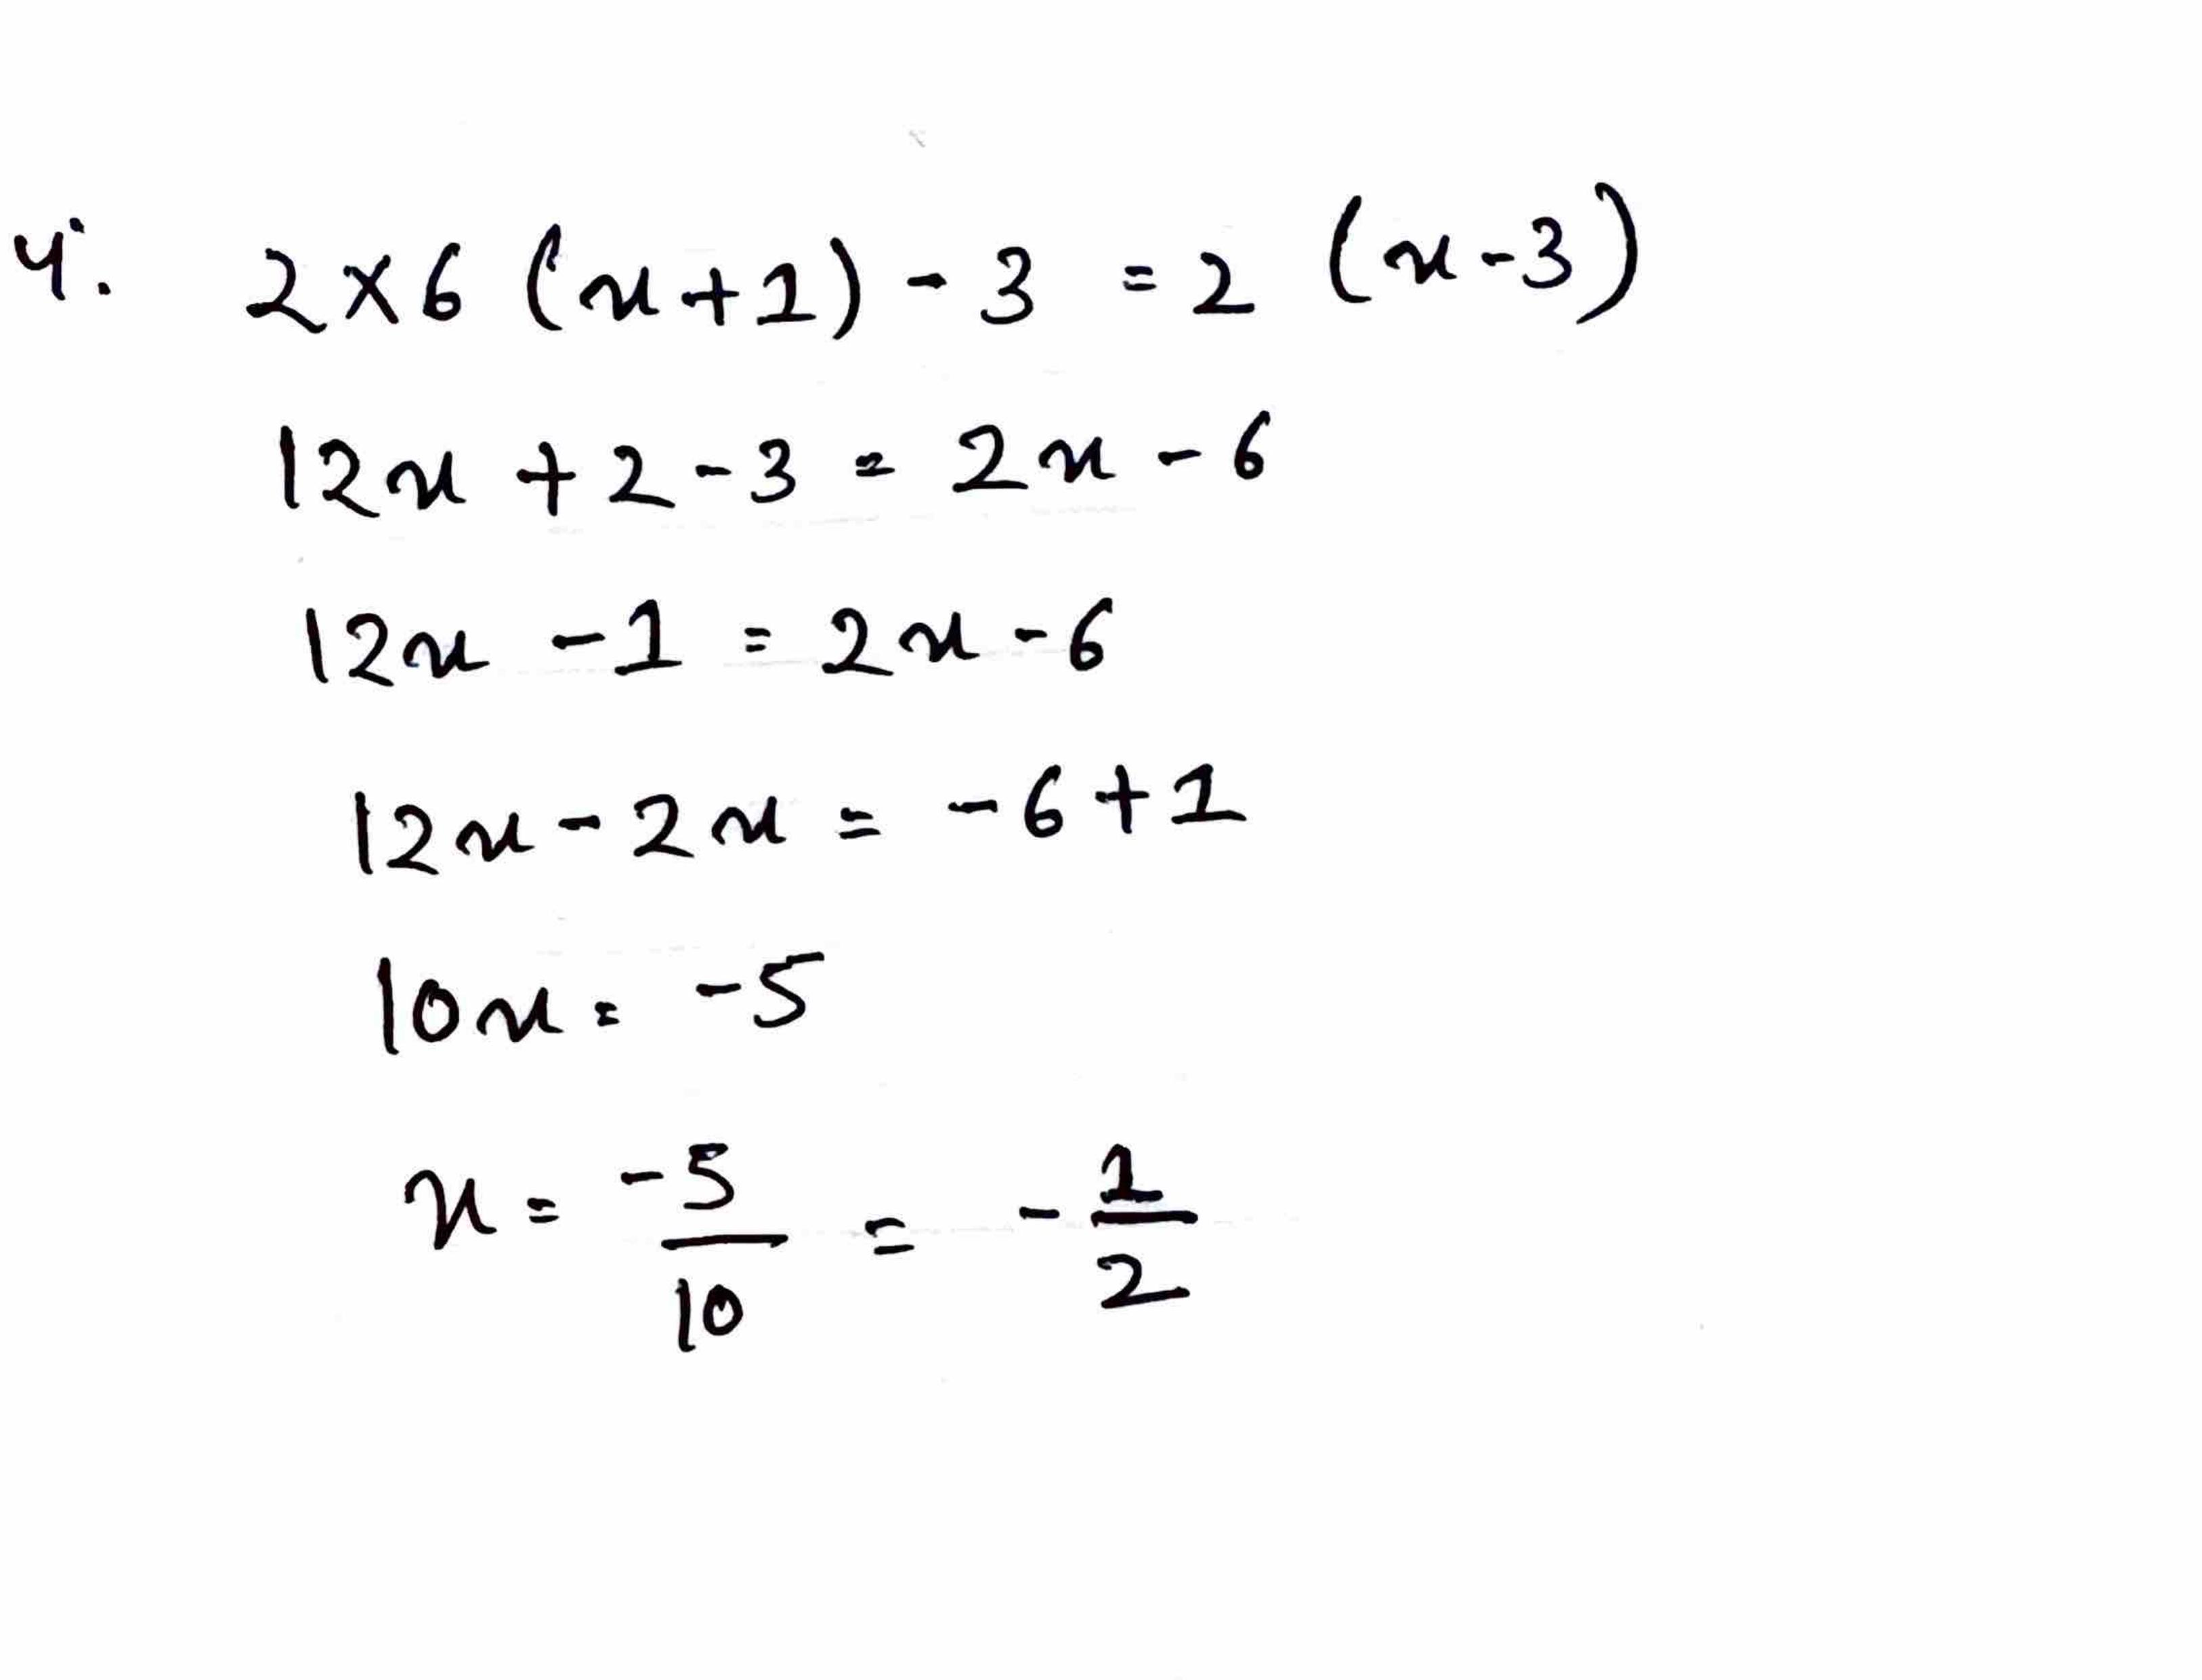 4. 2×6 (x+1) - 3 = 2 (x-3)
12x + 2 - 3 = 2x - 6
12x - 1 = 2x - 6
12x - 2x = - 6 + 1
10x = -5
x = -5/10 = - 1/2